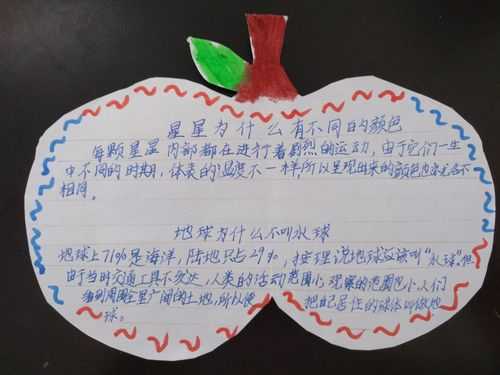 星星为什么有不同的颜色
每颗星星内部都在进行着剧烈的运动,由于它们一生
中不同的时期,体表的温度不一样所以呈现出来的颜色也就各不
相同。
地球为什么不叫水球
地球上71%是海洋,陆地只占29%,按理说地球应该叫“水球”。但
由于当时交通工具不发达,人类的活动范围小观察的范围也小.人们
看到周围全是广阔的土地,所以便 把自己居住的球体叫做地
球。